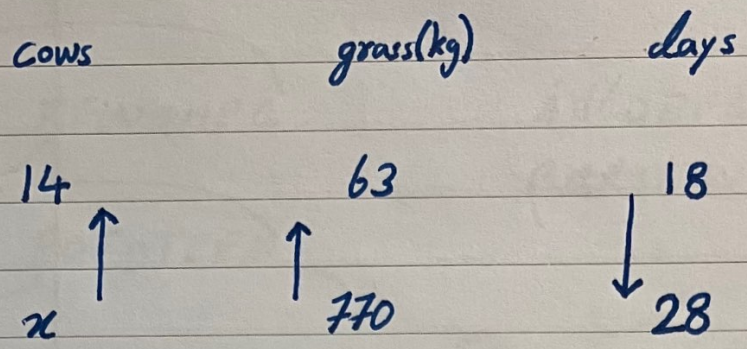 cows grass(kg) days
14 63 18
x 770 28